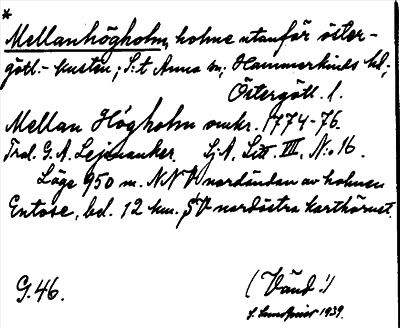 *
Mellanhögholm, holme utanför öster-
götl.-kusten; S:t Anna sn, Hammarkinds hd;
Östergötl. l.
Mellan Högholm omkr. 1774-76.
Trol. G. A. Lejonanker. Sj. A, Litt. III, N:o 16.
Läge 950 m. NNV nordändan av holmen
Entose, bel. 12 km. SV nordöstra karthörnet.
G. 46.
(Vänd!)
S. Lundqvist 1939.